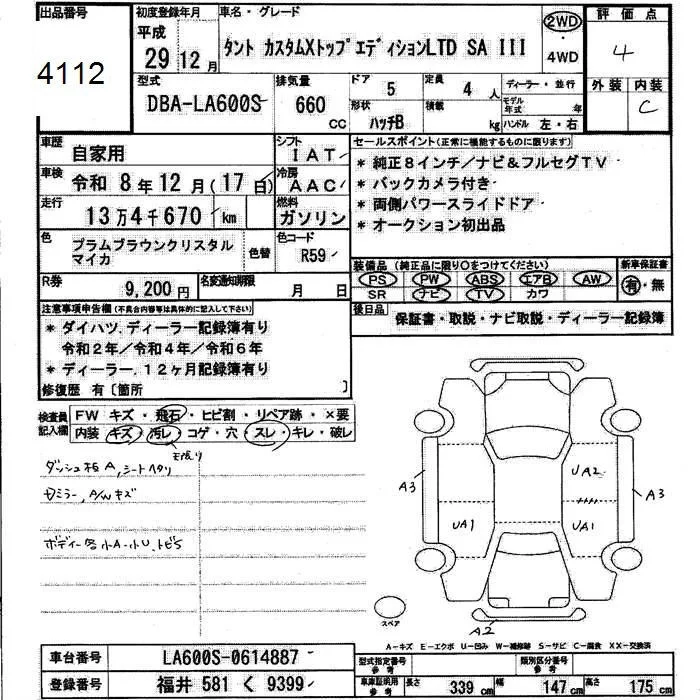 出品番号 4112
初度登録年月 平成 29年12月
車名・グレード タント カスタムXトップエディションLTD SA III
2WD・4WD
評価点 4
外装 内装 C
型式 DBA-LA600S
排気量 660 CC
ドア 5
定員 4人
形状 ハッチB
積載 kg
ディーラー・並行
モデル年式 年
ハンドル 左・右
車歴 自家用
シフト IAT
車検 令和 8年12月(17日)
冷房 AAC
走行 13万4千670km
燃料 ガソリン
色 プラムブラウンクリスタルマイカ
色替
色コード R59
R券 9,200円
名変通知期限 月 日
セールスポイント(正常に機能するものに限ります)
* 純正8インチ/ナビ&フルセグTV
* バックカメラ付き
* 両側パワースライドドア
* オークション初出品
装備品(純正品に限り○をつけてください)
PS PW ABS エアB AW
SR ナビ TV カワ
新車保証書 有・無
後日品 保証書・取説・ナビ取説・ディーラー記録簿
注意事項申告欄(不具合内容等は具体的に記入して下さい)
* ダイハツ.ディーラー記録簿有り
令和2年/令和4年/令和6年
* ディーラー.12ヶ月記録簿有り
修復歴 有〔箇所 〕
検査員記入欄
FW キズ・飛石・ヒビ割・リペア跡・×要
内装 キズ・汚レ・コゲ・穴・スレ・キレ・破レ
A3
UA2
A3
UA1
UA1
A2
スペア
A-キズ E-エクボ U-凹み W-補修跡 S-サビ C-腐食 XX-交換済
車台番号 LA600S-0614887
登録番号 福井 581 く 9399
型式指定番号 参考
類別区分番号 参考
車庫証明用 参考 長さ 339cm 幅 147cm 高さ 175cm